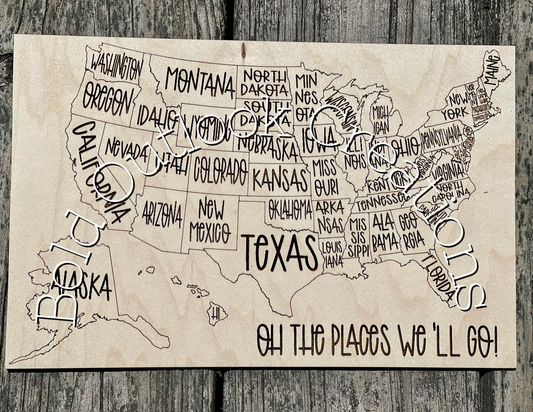 WASHINGTON
MONTANA
NORTH
DAKOTA
MIN
NES
OTA
MAINE
OREGON
IDAHO
WYOMING
SOUTH
DAKOTA
WISCONSIN
MICH
IGAN
NEW
YORK
CALIFORNIA
NEVADA
UTAH
COLORADO
NEBRASKA
IOWA
ILLI
NOIS
OHIO
PENNSYLVANIA
KANSAS
MISS
OURI
VIRGINIA
ARIZONA
NEW
MEXICO
OKLAHOMA
ARKA
NSAS
TENNESSEE
NORTH
CAROLINA
TEXAS
LOUIS
IANA
MIS
SIS
SIPPI
ALA
BAMA
GEO
RGIA
FLORIDA
ALASKA
HI
OH THE PLACES WE'LL GO!
Bold Outlook Creations